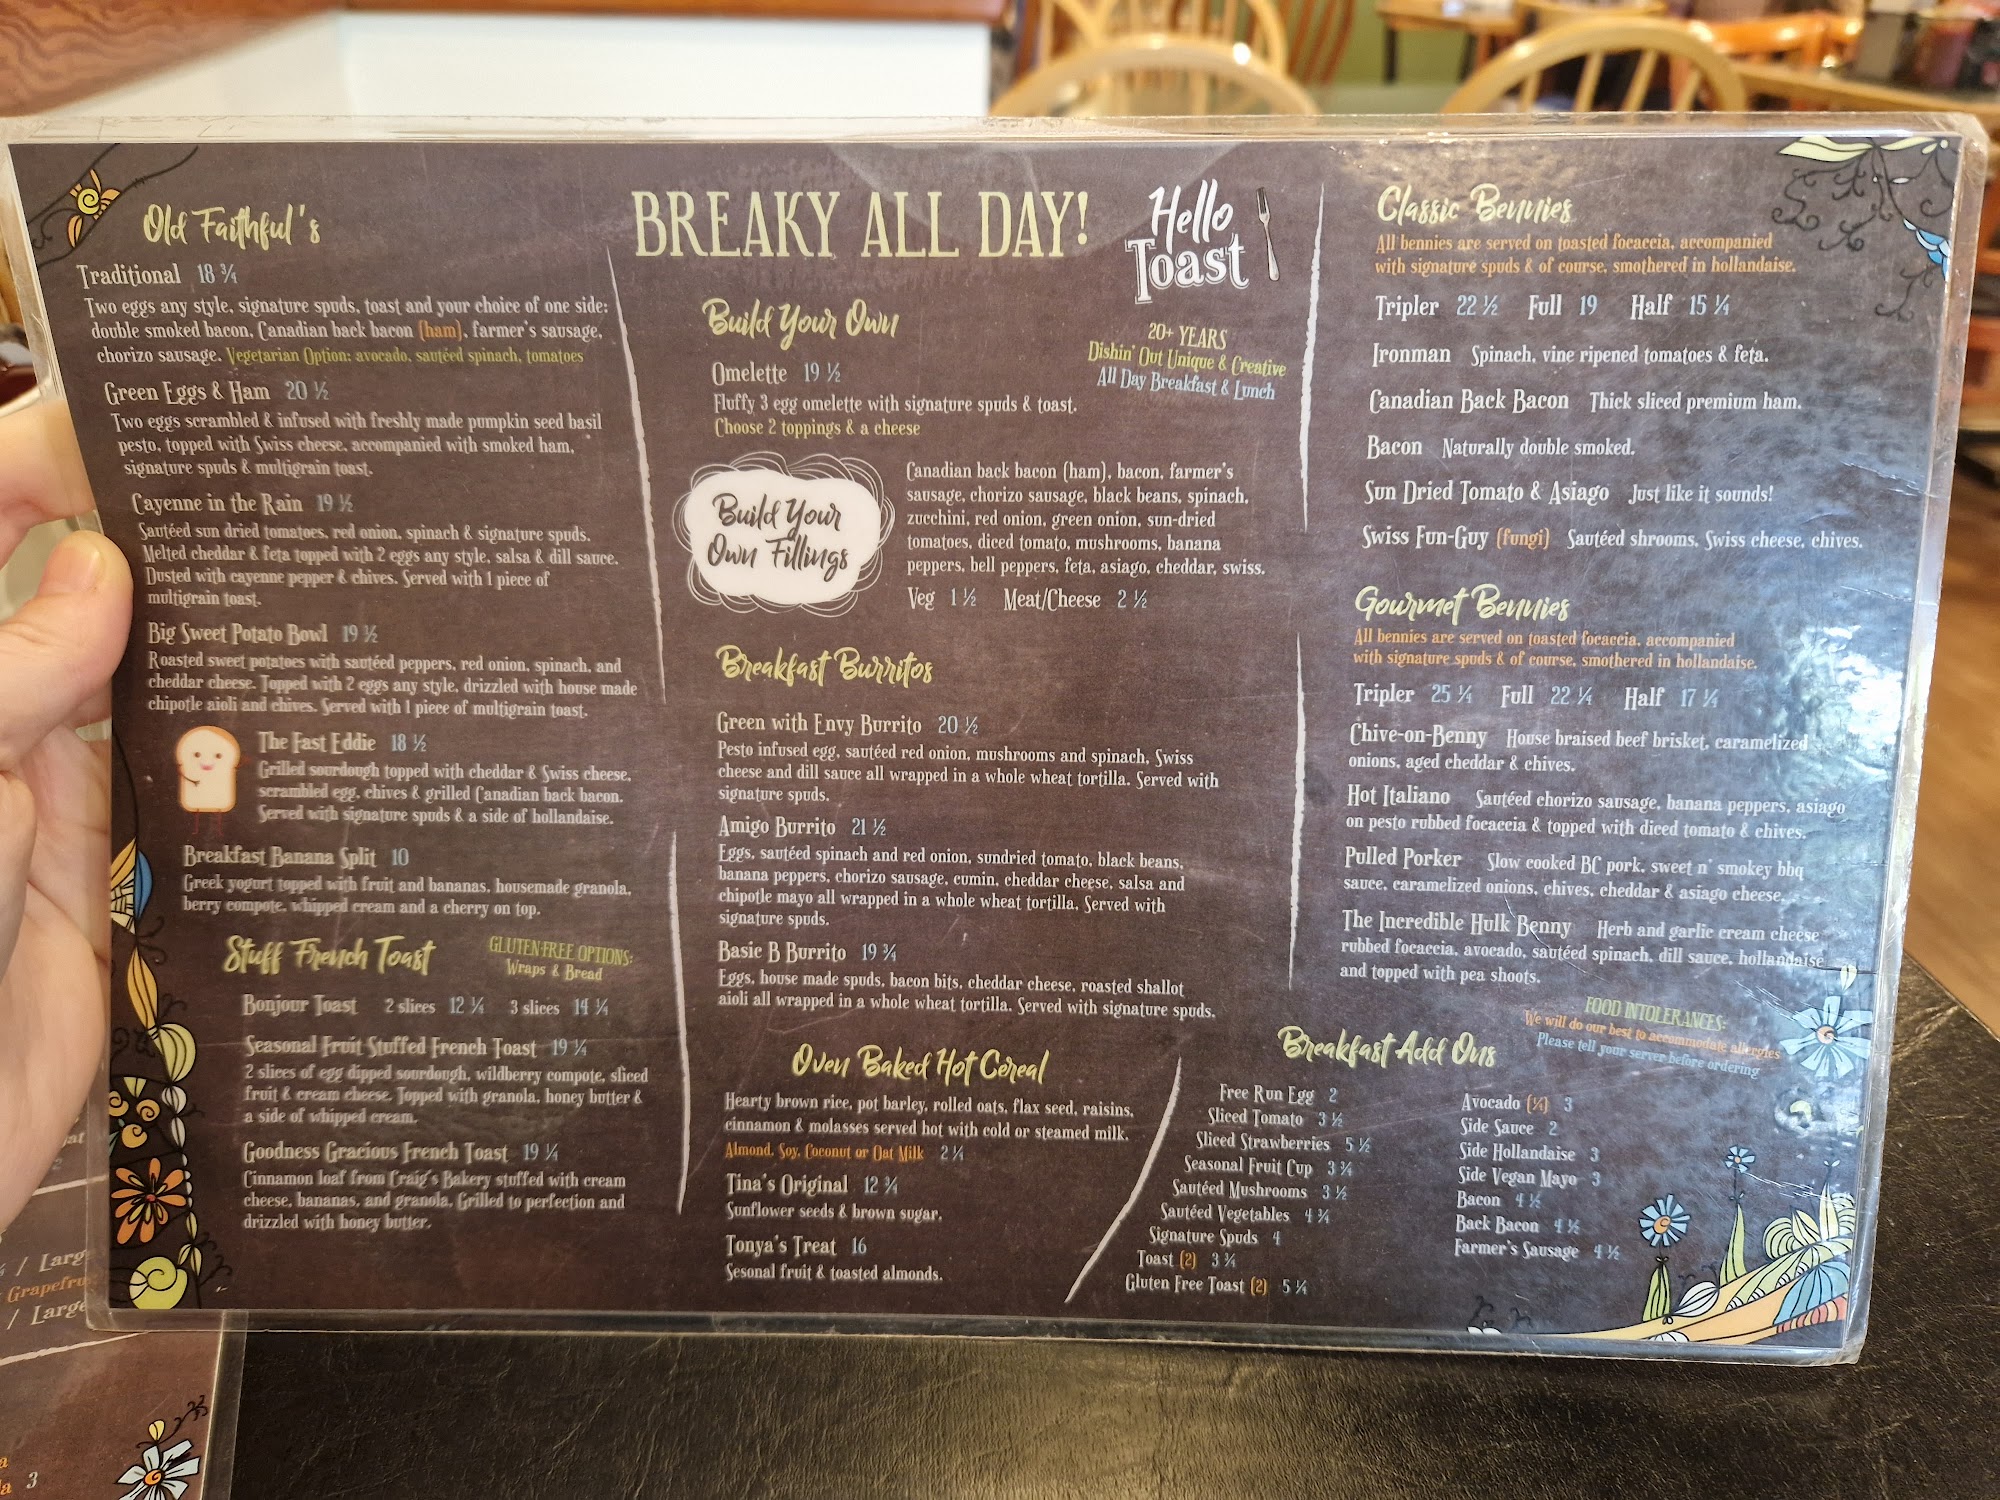 BREAKY ALL DAY!
Hello
Toast
20+ YEARS
Dishin' Out Unique & Creative
All Day Breakfast & Lunch
Old Faithful's
Traditional 18 ¾
Two eggs any style, signature spuds, toast and your choice of one side:
double smoked bacon, Canadian back bacon (ham), farmer's sausage,
chorizo sausage. Vegetarian Option: avocado, sautéed spinach, tomatoes
Green Eggs & Ham 20 ½
Two eggs scrambled & infused with freshly made pumpkin seed basil
pesto, topped with Swiss cheese, accompanied with smoked ham,
signature spuds & multigrain toast.
Cayenne in the Rain 19 ½
Sautéed sun dried tomatoes, red onion, spinach & signature spuds.
Melted cheddar & feta topped with 2 eggs any style, salsa & dill sauce.
Dusted with cayenne pepper & chives. Served with 1 piece of
multigrain toast.
Big Sweet Potato Bowl 19 ½
Roasted sweet potatoes with sautéed peppers, red onion, spinach, and
cheddar cheese. Topped with 2 eggs any style, drizzled with house made
chipotle aioli and chives. Served with 1 piece of multigrain toast.
The Fast Eddie 18 ½
Grilled sourdough topped with cheddar & Swiss cheese,
scrambled egg, chives & grilled Canadian back bacon.
Served with signature spuds & a side of hollandaise.
Breakfast Banana Split 10
Greek yogurt topped with fruit and bananas, housemade granola,
berry compote, whipped cream and a cherry on top.
Stuff French Toast
GLUTEN-FREE OPTIONS:
Wraps & Bread
Bonjour Toast 2 slices 12 ¼ 3 slices 14 ¼
Seasonal Fruit Stuffed French Toast 19 ¼
2 slices of egg dipped sourdough, wildberry compote, sliced
fruit & cream cheese. Topped with granola, honey butter &
a side of whipped cream.
Goodness Gracious French Toast 19 ¼
Cinnamon loaf from Craig's Bakery stuffed with cream
cheese, bananas, and granola. Grilled to perfection and
drizzled with honey butter.
Build Your Own
Omelette 19 ½
Fluffy 3 egg omelette with signature spuds & toast.
Choose 2 toppings & a cheese
Build Your
Own Fillings
Canadian back bacon (ham), bacon, farmer's
sausage, chorizo sausage, black beans, spinach,
zucchini, red onion, green onion, sun-dried
tomatoes, diced tomato, mushrooms, banana
peppers, bell peppers, feta, asiago, cheddar, swiss.
Veg 1 ½ Meat/Cheese 2 ½
Breakfast Burritos
Green with Envy Burrito 20 ½
Pesto infused egg, sautéed red onion, mushrooms and spinach, Swiss
cheese and dill sauce all wrapped in a whole wheat tortilla. Served with
signature spuds.
Amigo Burrito 21 ½
Eggs, sautéed spinach and red onion, sundried tomato, black beans,
banana peppers, chorizo sausage, cumin, cheddar cheese, salsa and
chipotle mayo all wrapped in a whole wheat tortilla, Served with
signature spuds.
Basic B Burrito 19 ¾
Eggs, house made spuds, bacon bits, cheddar cheese, roasted shallot
aioli all wrapped in a whole wheat tortilla. Served with signature spuds.
Oven Baked Hot Cereal
Hearty brown rice, pot barley, rolled oats, flax seed, raisins,
cinnamon & molasses served hot with cold or steamed milk.
Almond, Soy, Coconut or Oat Milk 2 ¼
Tina's Original 12 ¾
Sunflower seeds & brown sugar.
Tonya's Treat 16
Sesonal fruit & toasted almonds.
Classic Bennies
All bennies are served on toasted focaccia, accompanied
with signature spuds & of course, smothered in hollandaise.
Tripler 22 ½ Full 19 Half 15 ¼
Ironman Spinach, vine ripened tomatoes & feta.
Canadian Back Bacon Thick sliced premium ham.
Bacon Naturally double smoked.
Sun Dried Tomato & Asiago Just like it sounds!
Swiss Fun-Guy (fungi) Sautéed shrooms, Swiss cheese, chives.
Gourmet Bennies
All bennies are served on toasted focaccia, accompanied
with signature spuds & of course, smothered in hollandaise.
Tripler 25 ¼ Full 22 ¼ Half 17 ¼
Chive-on-Benny House braised beef brisket, caramelized
onions, aged cheddar & chives.
Hot Italiano Sautéed chorizo sausage, banana peppers, asiago
on pesto rubbed focaccia & topped with diced tomato & chives.
Pulled Porker Slow cooked BC pork, sweet n' smokey bbq
sauce, caramelized onions, chives, cheddar & asiago cheese.
The Incredible Hulk Benny Herb and garlic cream cheese
rubbed focaccia, avocado, sautéed spinach, dill sauce, hollandaise
and topped with pea shoots.
FOOD INTOLERANCES:
We will do our best to accommodate allergies
Please tell your server before ordering
Breakfast Add Ons
Free Run Egg 2
Sliced Tomato 3 ½
Sliced Strawberries 5 ½
Seasonal Fruit Cup 3 ¾
Sautéed Mushrooms 3 ½
Sautéed Vegetables 4 ¾
Signature Spuds 4
Toast (2) 3 ¾
Gluten Free Toast (2) 5 ¼
Avocado (¼) 3
Side Sauce 2
Side Hollandaise 3
Side Vegan Mayo 3
Bacon 4 ½
Back Bacon 4 ½
Farmer's Sausage 4 ½
/ Large
/ Large
3